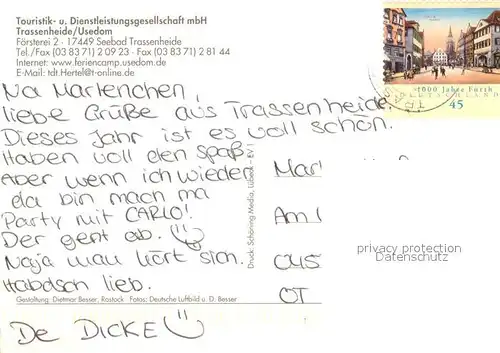 Touristik- u. Dienstleistungsgesellschaft mbH
Trassenheide/Usedom
Försterei 2 · 17449 Seebad Trassenheide
Tel./Fax (03 83 71) 2 09 23 · Fax (03 83 71) 2 81 44
Internet: www.feriencamp.usedom.de
E-Mail: tdt.Hertel@t-online.de
1000 Jahre Fürth
DEUTSCHLAND
45
Na Martenchen,
liebe Grüße aus Trassenheide.
Dieses Jahr ist es voll schön.
Haben voll den Spaß
Aber wenn ich wieder
da bin mach ma
Party mit CARLO!
Der geht ab.
Naja man hört sich.
Habdsch lieb.
De DICKE
Mar
Am
OT
privacy protection
Datenschutz
Druck: Schöning-Media, Lübeck
Gestaltung: Dietmar Besser, Rostock Fotos: Deutsche Luftbild u. D. Besser